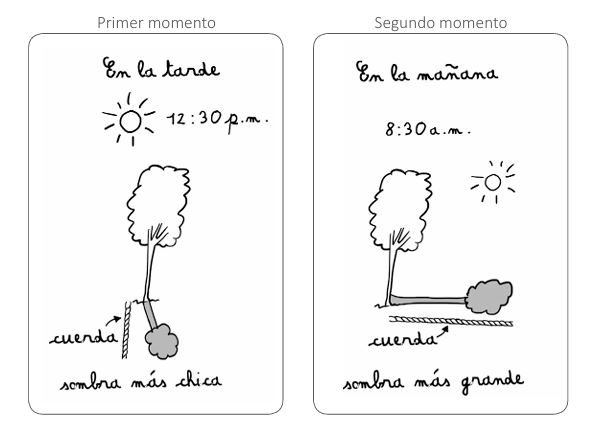 Primer momento
En la tarde
12:30 p.m.
cuerda
sombra más chica
Segundo momento
En la mañana
8:30 a.m.
cuerda
sombra más grande